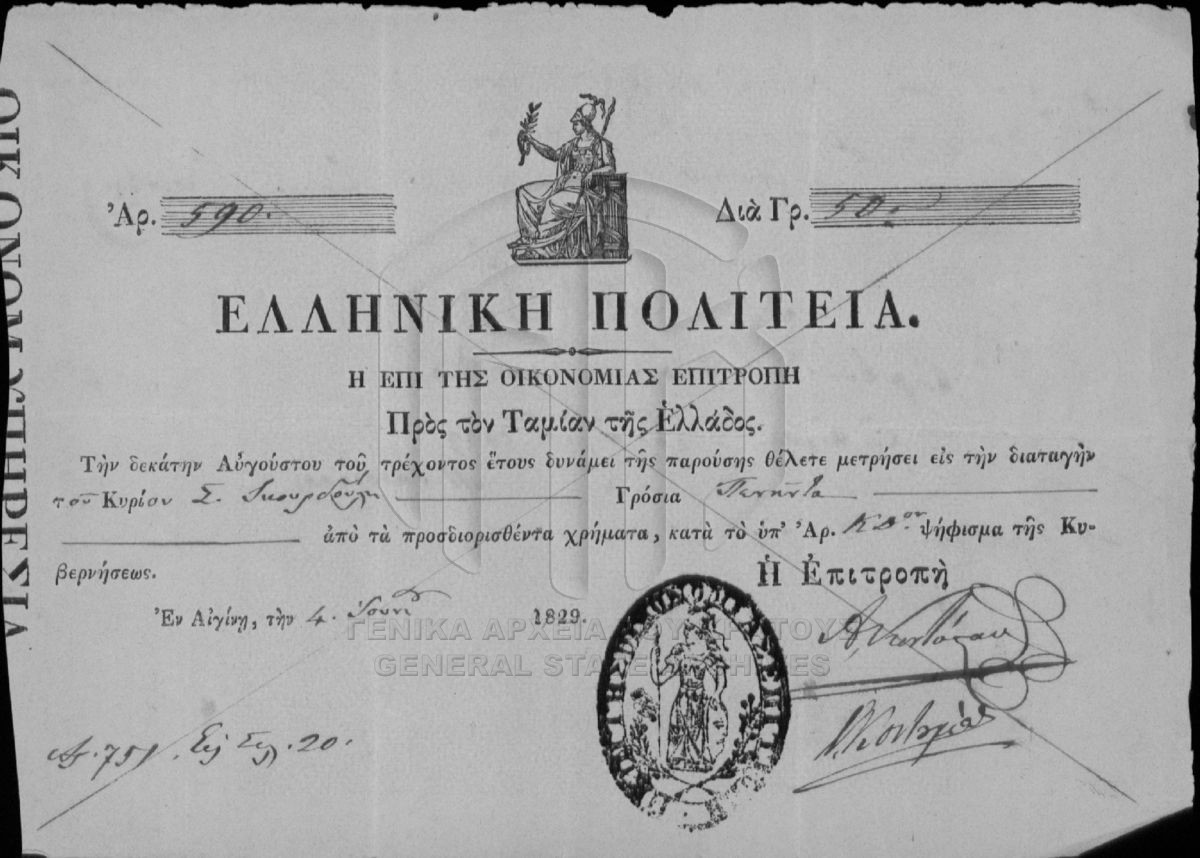 ΟΙΚΟΝΟΜ ΥΠΗΡΕΣΙΑ
Ἀρ. 590.
Διὰ Γρ. 50:
ΕΛΛΗΝΙΚΗ ΠΟΛΙΤΕΙΑ.
Η ΕΠΙ ΤΗΣ ΟΙΚΟΝΟΜΙΑΣ ΕΠΙΤΡΟΠΗ
Πρὸς τὸν Ταμίαν τῆς Ἑλλάδος.
Τὴν δεκάτην Αὐγούστου τοῦ τρέχοντος ἔτους δυνάμει τῆς παρούσης θέλετε μετρήσει εἰς τὴν διαταγὴν
τοῦ Κυρίου Σ. Γρόσια Πενῆντα
ἀπὸ τὰ προσδιορισθέντα χρήματα, κατὰ τὸ ὑπ' Ἀρ. ΚΔ.ον ψήφισμα τῆς Κυ-
βερνήσεως.
Ἡ Ἐπιτροπὴ
Ἐν Αἰγίνῃ, τὴν 4. Ἰουνί 1829.
ΓΕΝΙΚΑ ΑΡΧΕΙΑ ΤΟΥ ΚΡΑΤΟΥΣ
GENERAL STATE ARCHIVES
Ἀρ. 751. Εἰς Σελ. 20.